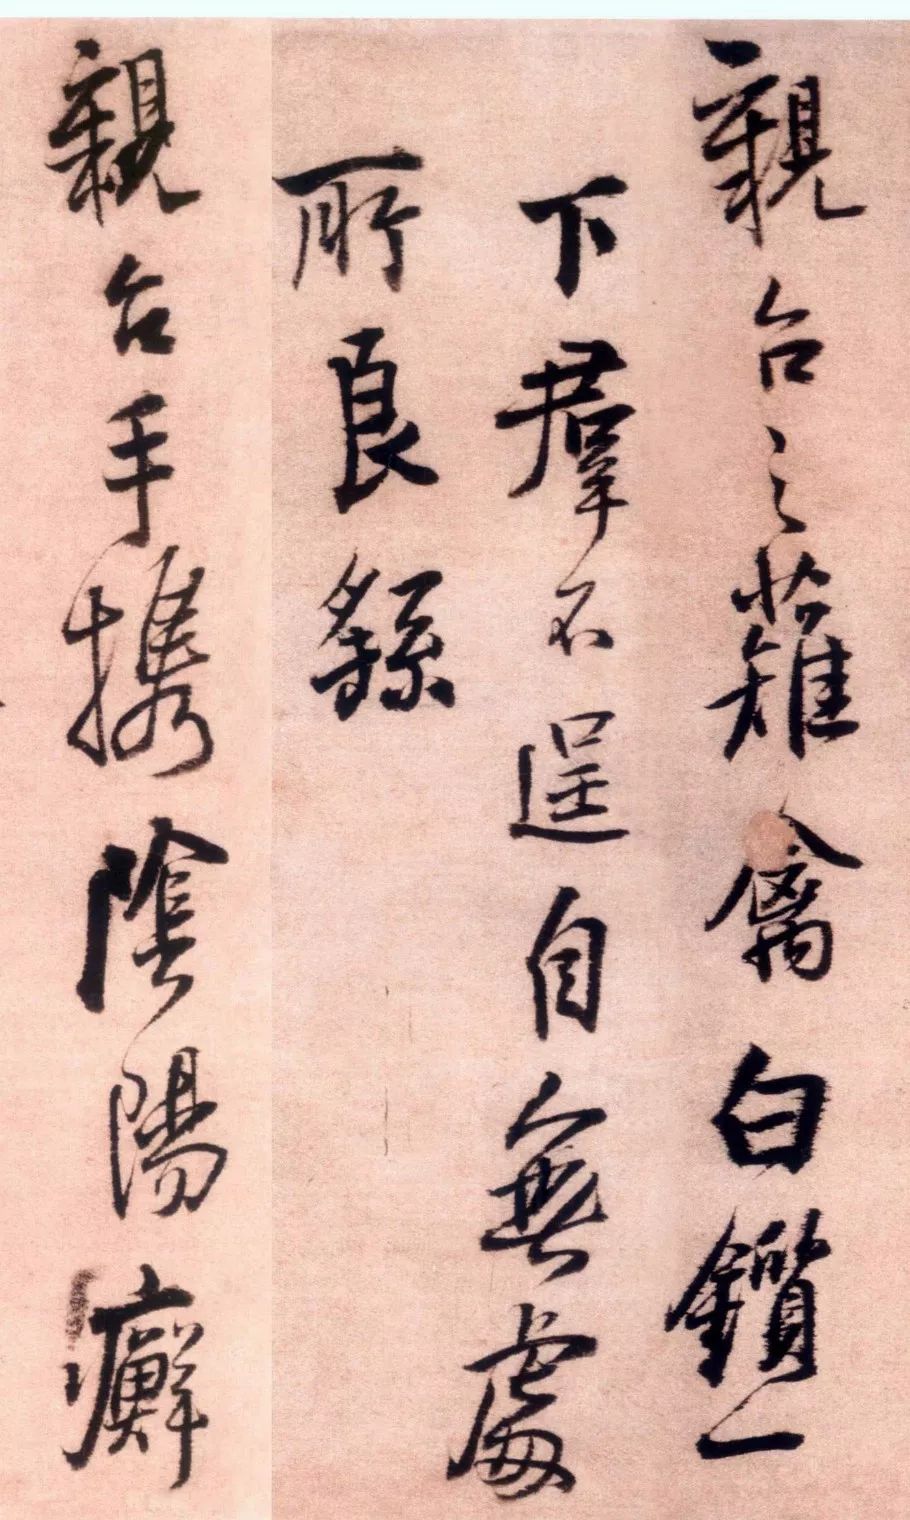 親台之薙禽白鑽一
下羣不逞自無處
所良繇
親台手攜陰陽癬